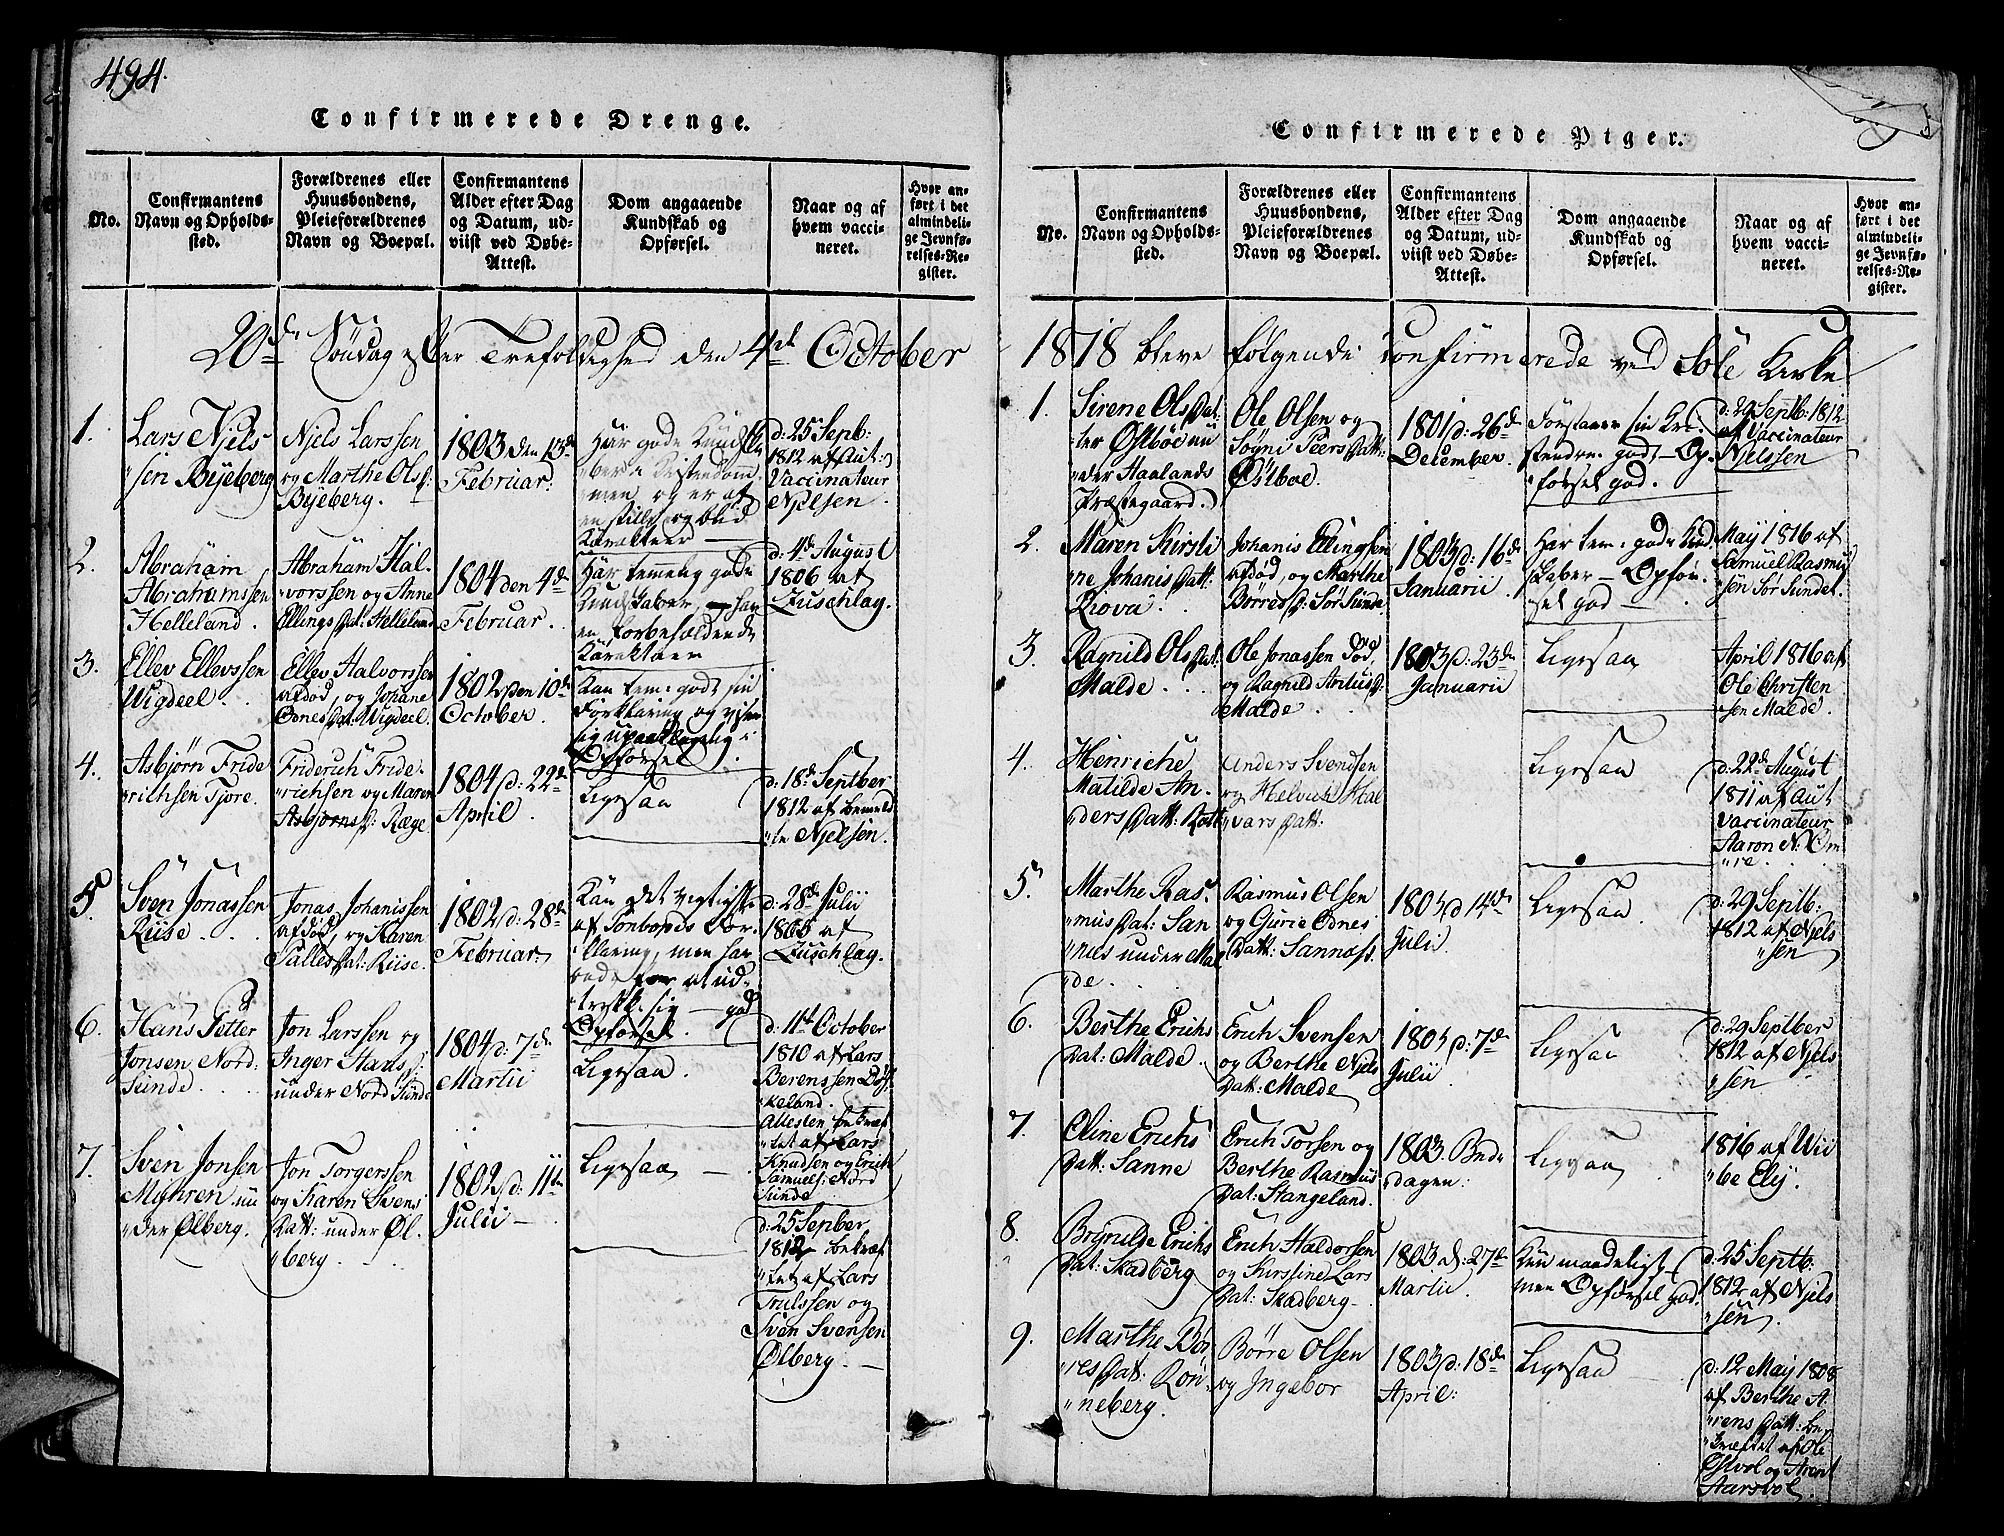 494.
Confirmerede Drenge.
No.
Confirmantens
Navn og Opholds-
sted.
Forældrenes eller
Huusbondens,
Pleieforældrenes
Navn og Boepæl.
Confirmantens
Alder efter Dag
og Datum, ud-
viist ved Døbe-
Attest.
Dom angaaende
Kundskab og
Opførsel.
Naar og af
hvem vacci-
neret.
Hvor an-
ført i det
almindeli-
ge Jevnfø-
relses-Re-
gister.
20de Söndag efter Trefoldighed den 4de October
1.
Lars Njels
"sen Byeberg
Njels Larssen
og Marthe Olsd:
Byeberg.
1803 den 13de
Februar:
Har gode Kundska
"ber i Cristendom
men og er af
en stille og blid
Karakteer
d: 25 Septb:
1812 af Aut:
Vaccinateur
Njelsen
2.
Abraham
Abrahamssen
Helleland.
Abraham Hal-
"vorssen og Anne
Ellings Dat: Helleland
1804 den 4de
Februar.
Har temmelig gode
Kundskaber, har
en forbeholdende
Karakteer
d: 4de August
1806 af
Zuschlag.
3.
Ellev Ellevssen
Wigdeel.
Ellev Halvorssen
afdød, og Johane
Ødnes Dat: Wigdeel.
1802 den 10de
October.
Kan tem: godt sin
Forklaring og viser
sig upaaklagelig i
Opførsel.
4.
Asbjørn Fride
"richsen Tjore.
Friderich Fride-
"richsen og Maren
Asbjørnsd: Ræge
1804 d: 22de
April.
Ligesaa
d: 18de Septber
1812 af bemeld
"te Njelsen.
5.
Sven Jonassen
Riise.
Jonas Johanissen
afdød, og Karen
Salles Dat: Riise.
1802 d: 28de
Februar:
Kan det vigtigste
af Pontopids For-
klaring, men har
ondt for at ud-
"trykke sig — god
Opførsel.
d: 28de Julii
1805 af
Zuschlag.
6.
Hans Petter
Jonsen Nord-
Sunde.
Jon Larssen og
Inger Hansd:
under Nord Sunde
1804 d: 7de
Martii
Ligesaa.
d: 11te October
1810 af Lars
Berenssen Bøs-
keland.
Attesten bekræf
"tet af Lars
Knudsen og Erich
Samuels: Nord
Sunde.
7.
Sven Jonsen
Myhren un
"der Ølberg.
Jon Torgerssen
og Karen Svens
Datt: under Øl-
"berg.
1802 d: 11te
Julii —
Ligesaa —
d: 25 Sepber
1812 bekræf
"tet af Lars
Trulssen og
Sven Svensen
Ølberg. —
Confirmerede Piger.
No.
Confirmantens
Navn og Opholds-
sted.
Forældrenes eller
Huusbondens,
Pleieforældrenes
Navn og Boepæl.
Confirmantens
Alder efter Dag
og Datum, ud-
viist ved Døbe-
Attest.
Dom angaaende
Kundskab og
Opførsel.
Naar og af
hvem vacci-
neret.
Hvor an-
ført i det
almindeli-
ge Jevnfø-
relses-Re-
gister.
1818 bleve følgende Confirmerede ved Sole Kirke
1.
Sirene Ols Dat-
ter Østbøe un
"der Haalands
Præstegaard.
Ole Olsen og
Søgni Peers Datt:
Østbøe.
1801 d: 26de
December.
Forstaaer sin Kri-
stendom godt — Op-
førsel god.
d: 29 Septb: 1812
af Vaccinateur
Njelssen
2.
Maren Kirsti
"ne Johanis Datt:
Kiova.
Johanis Ellingsen
afdød, og Marthe
Børres D: Sør Sunde
1803 d: 16de
Januarii
Har tem: gode Kund
skaber — Opfør-
sel god —
May 1816 af
Samuel Rasmus
"sen Sør Sunde.
3.
Ragnild Ols Dat:
Malde.
Ole Jonassen Død,
og Ragnild D:
Malde.
1803 d: 23de
Januarii
Ligesaa
April 1816 af
Ole Christen
"sen Malde.
4.
Henriche
Matilde An-
"ders Datt: Rott
Anders Svendsen
og Helvich Hal
"vars Datt:
Ligesaa
d: 22de August
1811 af Aut
Vaccinateur
Aaron N: Om
"re.
5.
Marthe Ras-
"mus Dat: San
"nes under Mal
"de.
Rasmus Olsen
og Gurie Ødnes
Datt: Sannæs.
1803 d 14de
Julii.
Ligesaa.
d: 29 Septb:
1812 af Njels
"sen
6.
Berthe Erichs
Dat: Malde.
Erich Svensen
og Berthe Njels
Dat: Malde
1803 d: 7de
Julii
Ligesaa
d: 29 Septber
1812 af Njels
"sen
7.
Oline Erichs
Datt: Sanne
Erich Torsen og
Berthe Rasmus
Dat: Stangeland.
1803. Bede
dagen:
Ligesaa
1816 af Wii
"be Ely.
8.
Brynilde Erichs
Dat: Skadberg
Erich Haldorsen
og Kirstine Lars
Dat: Skadberg.
1803 d: 27de
Martii.
Kun maadeligt —
men Opførsel god.
d: 25 Septb:
1812 af Njels
"sen.
9.
Marthe Bør
"res Dat: Røn-
"neberg.
Børre Olsen
og Ingebor
1803 d: 18de
April:
Ligesaa
d: 12 May 1808
af Berthe A-
"rens Datt: be-
"kræftet af Ole
Østvol og Arent
Aarsvol.